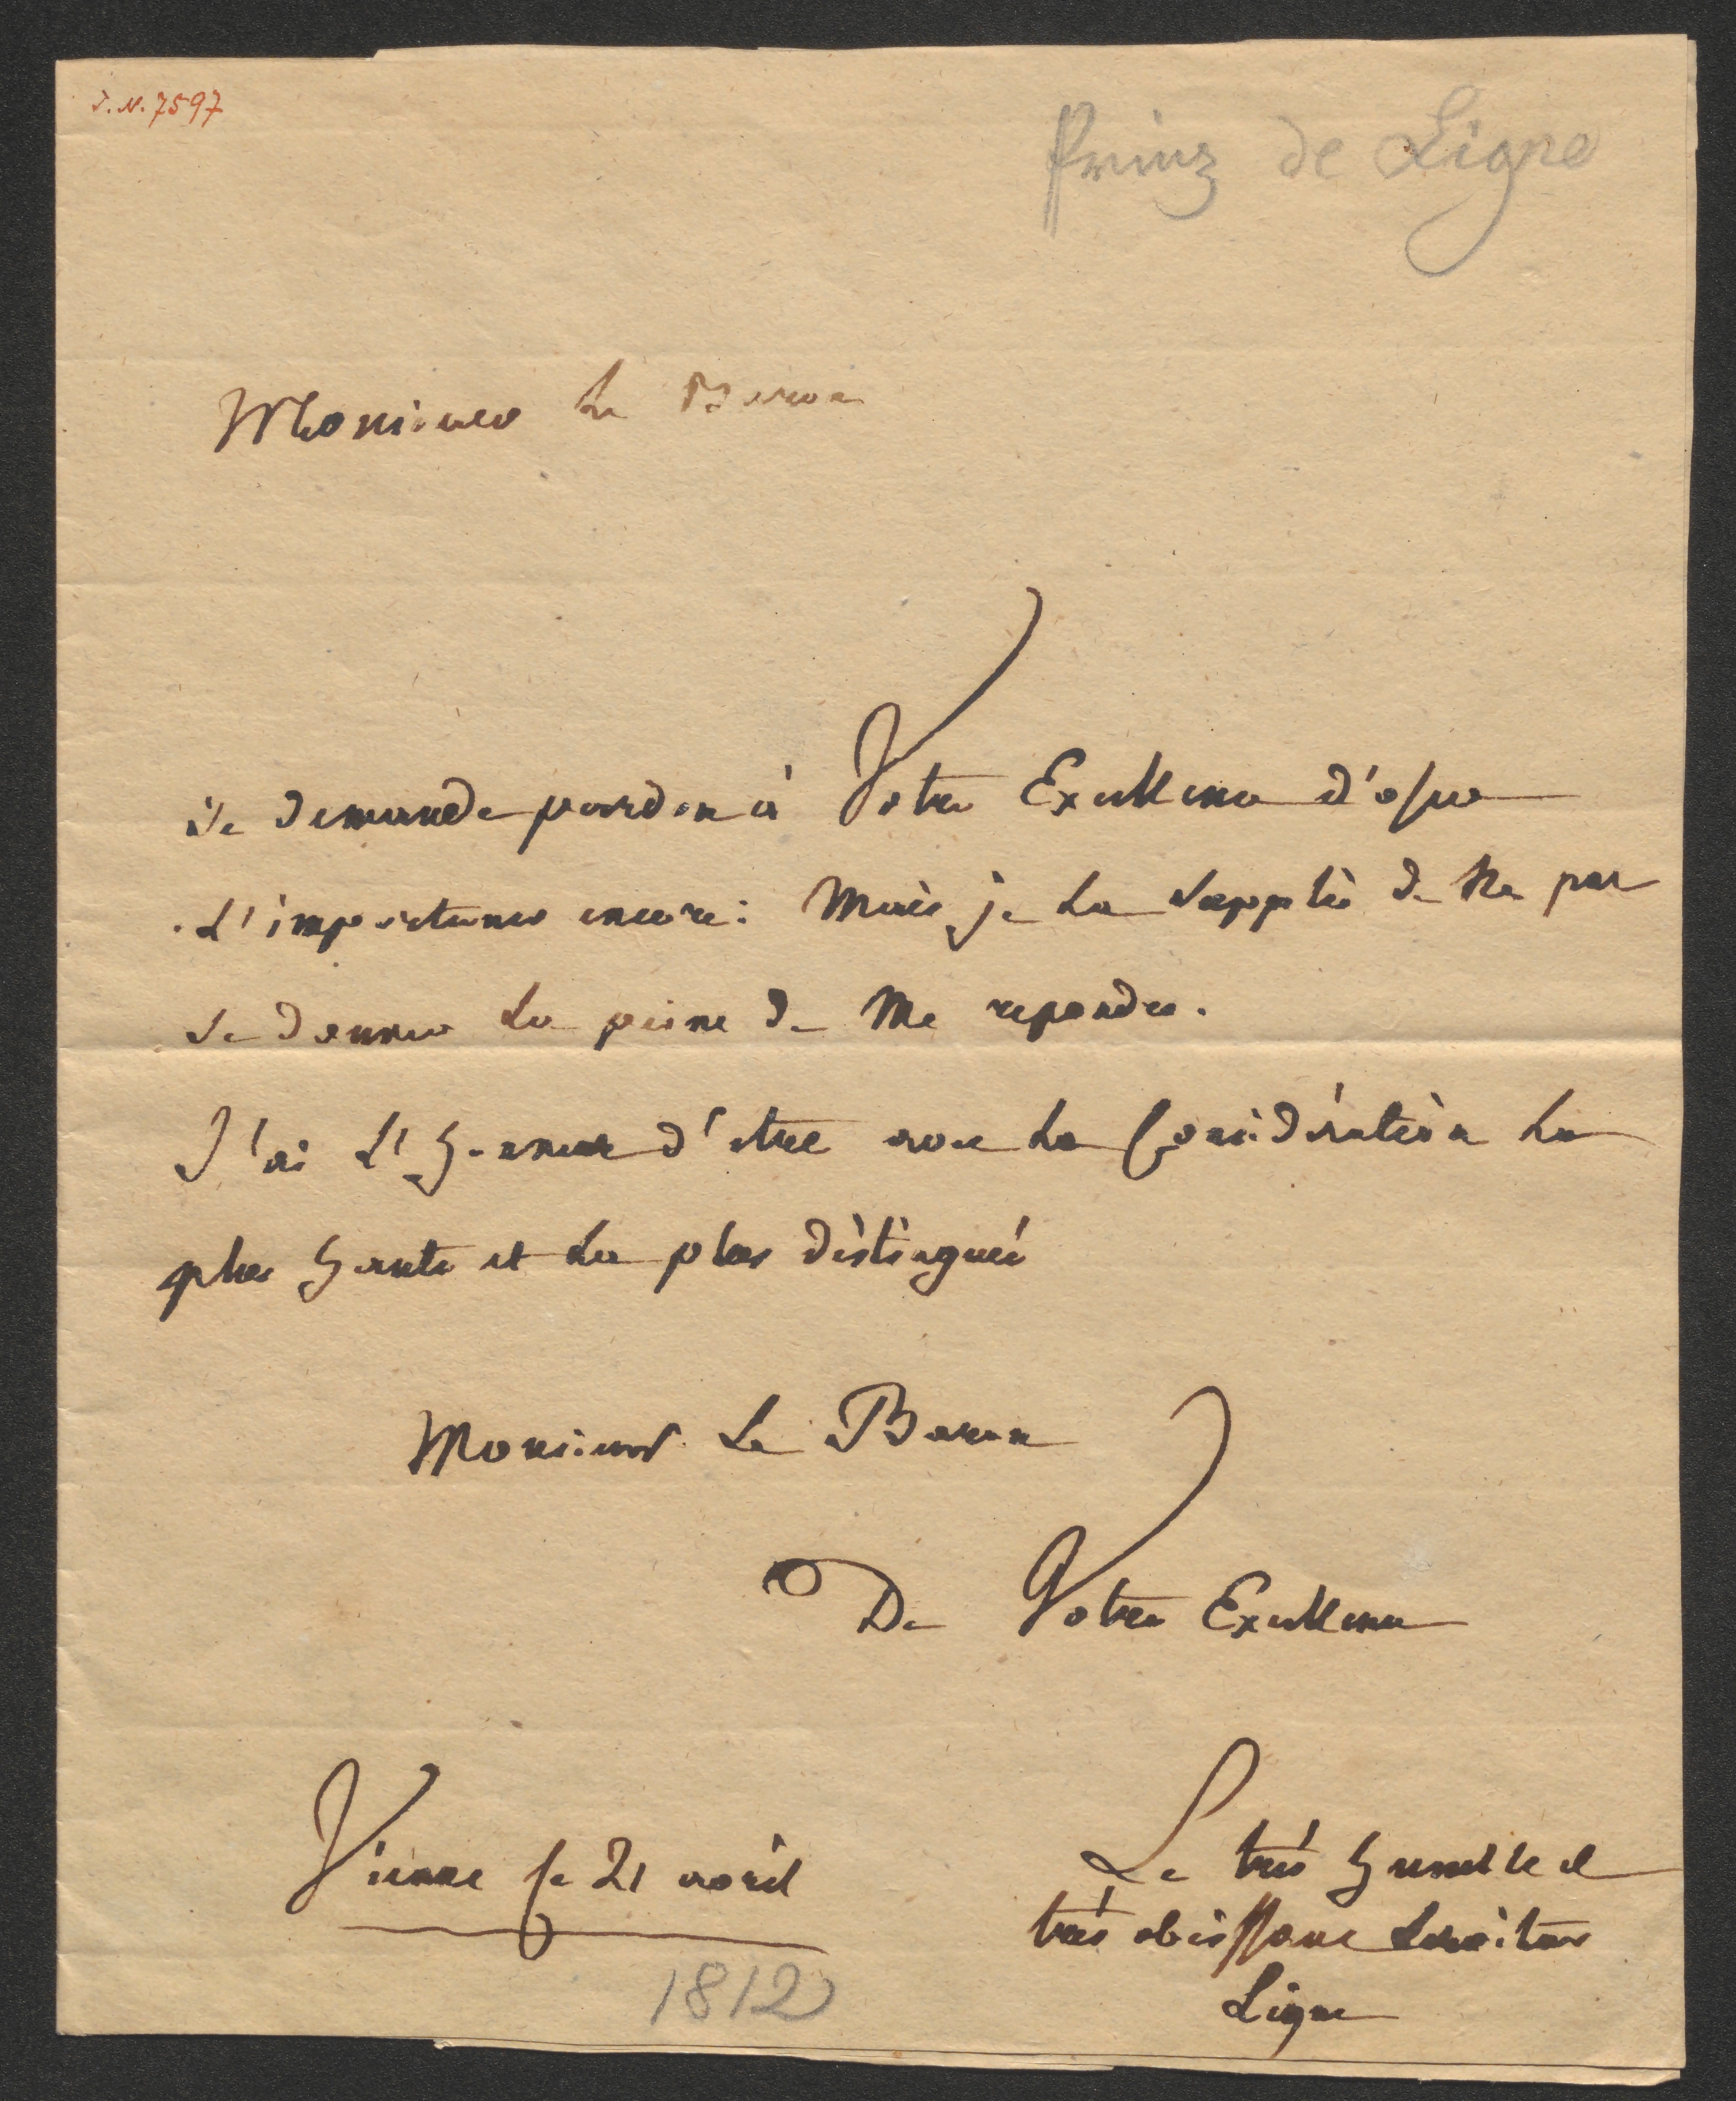 I.N. 7597
Prinz de Ligne
Monsieur Le Baron
Je demande pardon à Votre Excellence d'oser
L'importuner encore: Mais je La Supplie de Ne pas
Se donner La peine de Me repondre.
J'ai L'honneur d'etre avec La Considération La
plus haute et La plus distinguée
Monsieur Le Baron
De Votre Excellence
Vienne le 21 avril
1812
Le très humble et
très obéissant Serviteur
Ligne